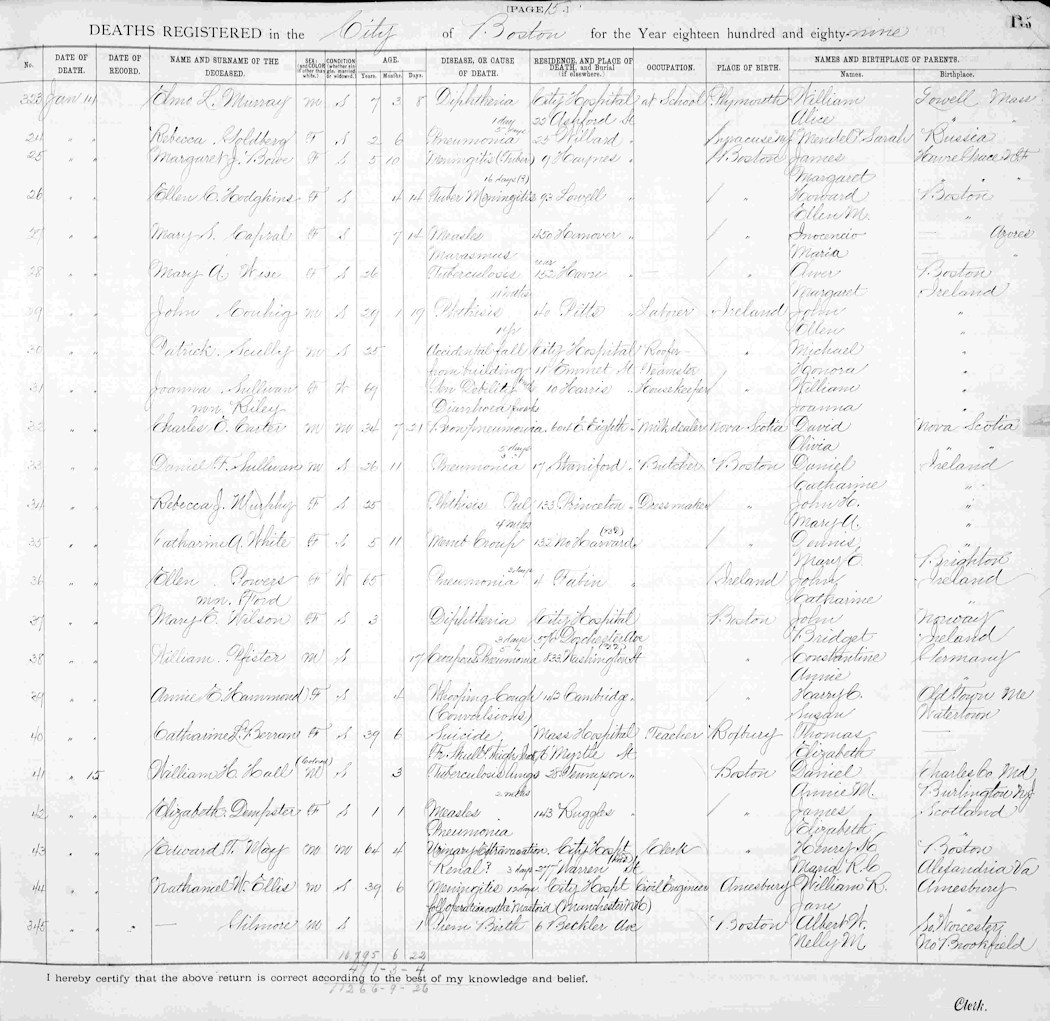 [PAGE 15.]
115
DEATHS REGISTERED in the City of Boston for the Year eighteen hundred and eighty-nine
No. DATE OF DEATH. DATE OF RECORD. NAME AND SURNAME OF THE DECEASED. SEX— and COLOR if other than white. CONDITION (whether single, married or widowed.) AGE. Years. Months. Days. DISEASE, OR CAUSE OF DEATH. RESIDENCE, AND PLACE OF DEATH, and Burial if elsewhere. OCCUPATION. PLACE OF BIRTH. NAMES AND BIRTHPLACE OF PARENTS. Names. Birthplace.
323 Jan 14 Elmo L. Murray M S 7 3 8 Diphtheria City Hospital at School Plymouth William Lowell Mass
1 day 22 Ashford St Alice
5 days
24 " " Rebecca Goldberg F S 2 6 Pneumonia 25 Willard " Syracuse NY Mendel & Sarah Russia
25 " " Margaret J. Bowe F S 5 10 Meningitis (Tuber) 9 Haynes " Boston James Havre Grace N F
16 days (?) Margaret " "
26 " " Ellen C. Hodgkins F S 4 14 Tuber Meningitis 93 Lowell " " Howard Boston
Ellen M. "
27 " " Mary S. Capral F S 7 14 Measles 450 Hanover " " Inocencio — Azores
Marasmus Maria — "
28 " " Mary A. Wise F S 26 Tuberculosis rear 152 Havre " — " Oliver Boston
11 mths Margaret Ireland
29 " " John Conhig M S 29 1 19 Phthisis 40 Pitts " Laborer Ireland John "
1 yr Ellen "
30 " " Patrick Scully M S 35 Accidental fall City Hospital Roofer " Michael "
from building 11 Emmet St Teamster Honora "
31 " " Joanna Sullivan F W 69 Sen Debility 10 Harris " Housekeeper " William "
mn. Riley Diarrhoea Joanna "
32 " " Charles E. Carter M M 34 7 21 Pneumonia 604 E Eighth " Milk dealer Nova Scotia David Nova Scotia
5 days Olivia "
33 " " Daniel F. Sullivan M S 26 11 Pneumonia 17 Staniford " Butcher Boston Daniel Ireland
Catharine "
34 " " Rebecca J. Murphy F S 25 Phthisis Pul 133 Princeton " Dressmaker " John H. "
4 mths Mary A. "
35 " " Catharine A. White F S 5 11 Memb Croup 132 No Harvard " " Dennis "
Mary E. Brighton
2 days
36 " " Ellen Powers F W 65 Pneumonia 4 Fabin " Ireland John Ireland
mn. Ford Catharine "
37 " " Mary E. Wilson F S 3 Diphtheria City Hospital Boston John Norway
3 days Dorchester Ave Bridget Ireland
38 " " William Pfister M S 17 Croupous Pneumonia Washington St " Constantine Germany
Annie "
39 " " Annie E. Hammond F S 4 Whooping Cough 143 Cambridge " " Harry C. Oldtown Me
(Convulsions) Susan Watertown
40 " " Catharine L. Berran F S 39 6 Suicide, Mass Hospital Teacher Roxbury Thomas —
Fr. Skull & Thigh Myrtle St Elizabeth —
41 " 15 William H. Hall (Colored) M S 3 Tuberculous lungs 28 Tennyson " Boston Daniel Charles Co Md
2 mths Annie M. Burlington NJ
42 " " Elizabeth Dempster F S 1 1 Measles 143 Ruggles " " James Scotland
Pneumonia Elizabeth "
43 " " Edward A. May M M 64 4 Urinary Extravasation City Hospt Clerk " Henry K Boston
Renal? 3 days Warren St Maria R. C. Alexandria Va
44 " " Nathaniel W. Ellis M S 39 6 Meningitis 12 days City Hospt Civil Engineer Amesbury William R. Amesbury
foll operation on the Mastoid (Manchester N.H.) Jane "
345 " " " — Gilmore M S 1 Prem Birth 6 Beckler Ave Boston Albert H. So Worcester
Nelly M. No Brookfield
10,795 6 22
471-3-4
11266-9-26
I hereby certify that the above return is correct according to the best of my knowledge and belief.
Clerk.